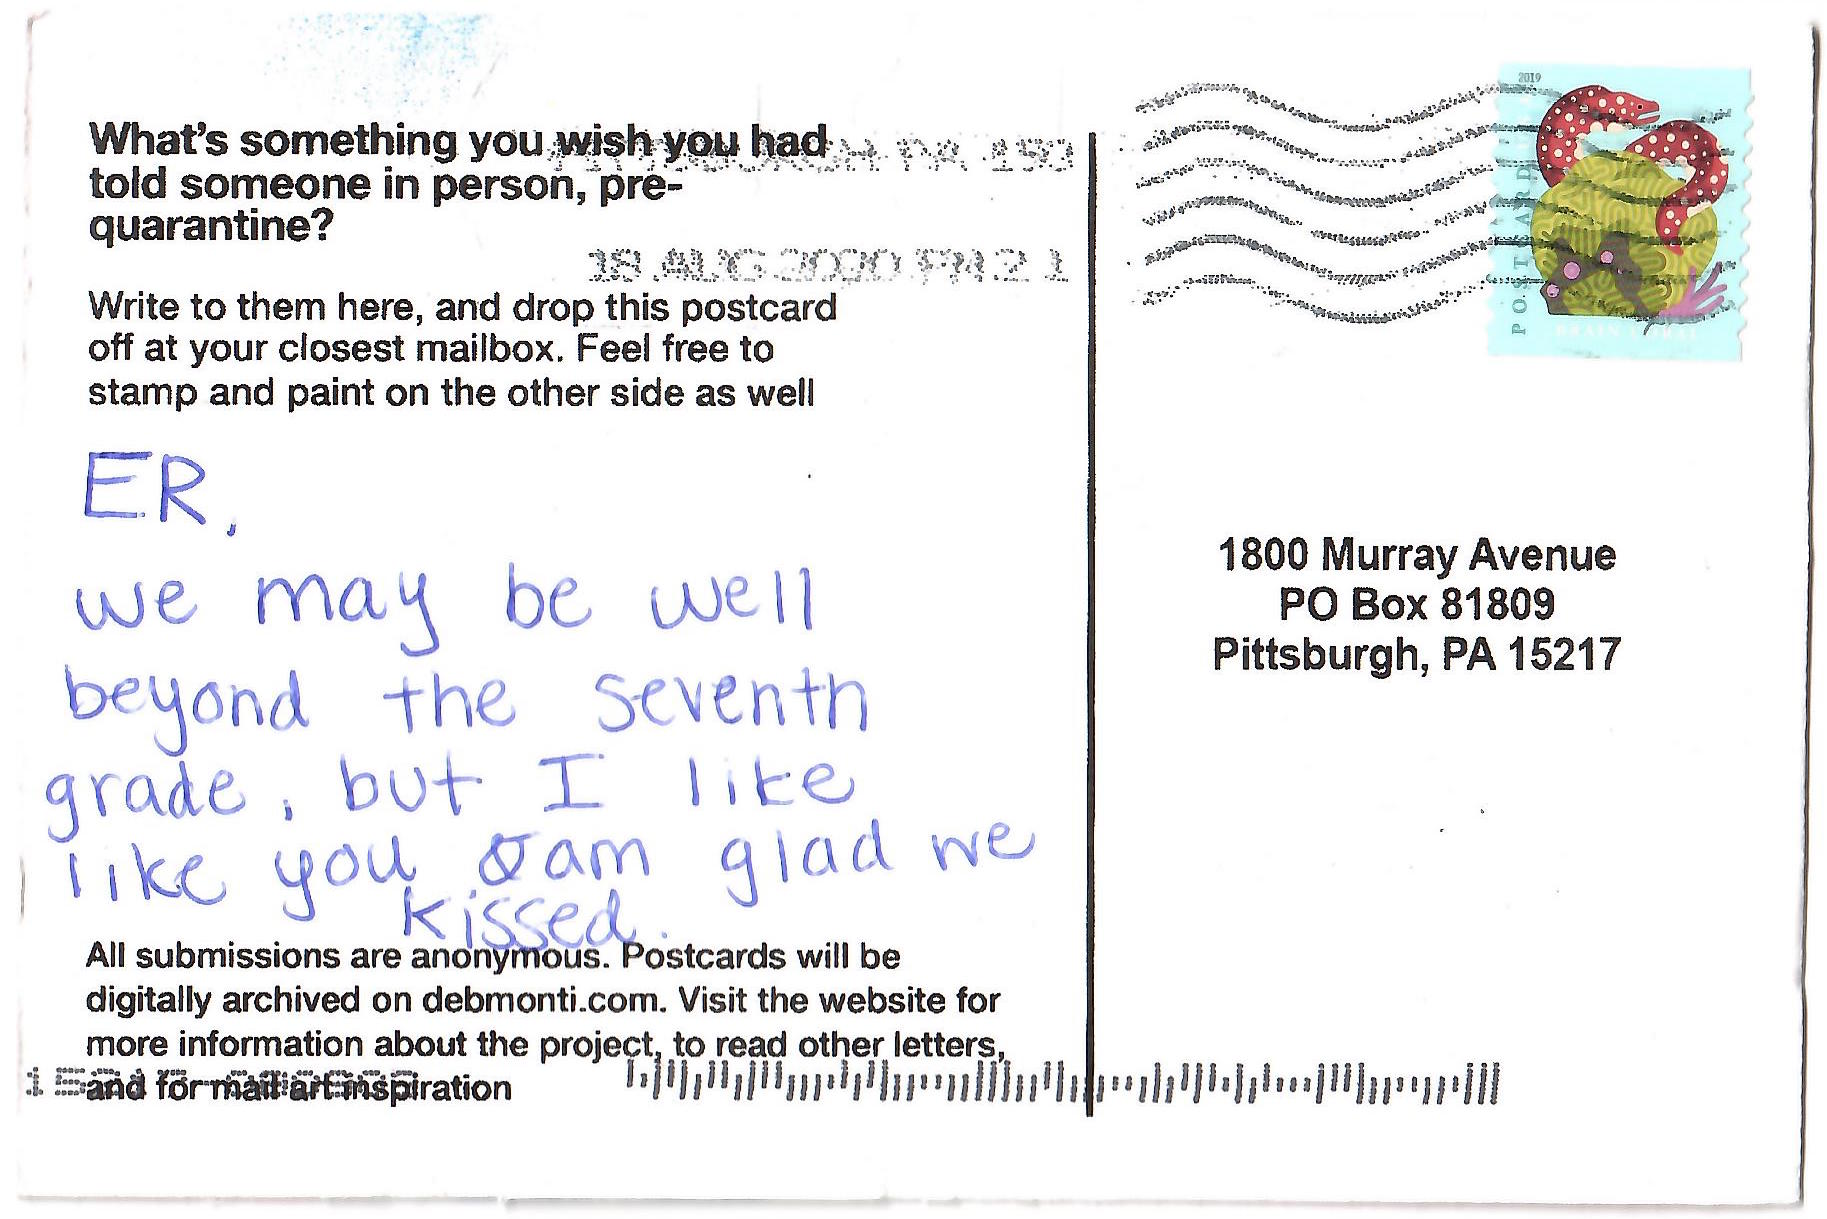 What's something you wish you had
told someone in person, pre-
quarantine?
PITTSBURGH PA 151
18 AUG 2020 PM 2 L
Write to them here, and drop this postcard
off at your closest mailbox. Feel free to
stamp and paint on the other side as well
ER,
we may be well
beyond the seventh
grade, but I like
like you & am glad we
kissed.
All submissions are anonymous. Postcards will be
digitally archived on debmonti.com. Visit the website for
more information about the project, to read other letters,
and for mail art inspiration
2019
POSTCARD
BRAIN CORAL
1800 Murray Avenue
PO Box 81809
Pittsburgh, PA 15217